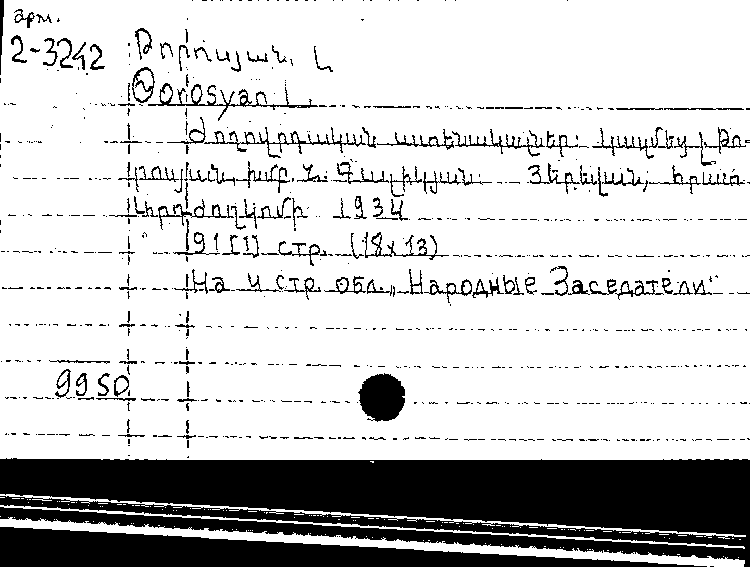 арм.
2-3242 Թորոսյան, Լ
Թorosyan L.
Ժողովրդական ատենակալներ: Կազմեց Լ. Թո-
րոսյան, խմբ. Հ. Գալիկյան: Յերեվան, հրատ
Խորժողկոմի 1934
91 [1] стр. (18x13)
На 4 стр. обл. „Народные Заседатели"
9950